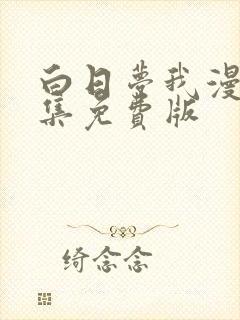 白日梦我漫
集免费版
绮念念